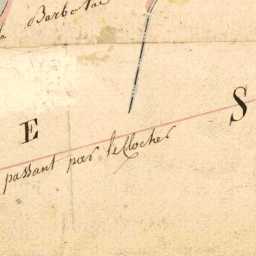 la Barbotai
E S
passant par le Clocher